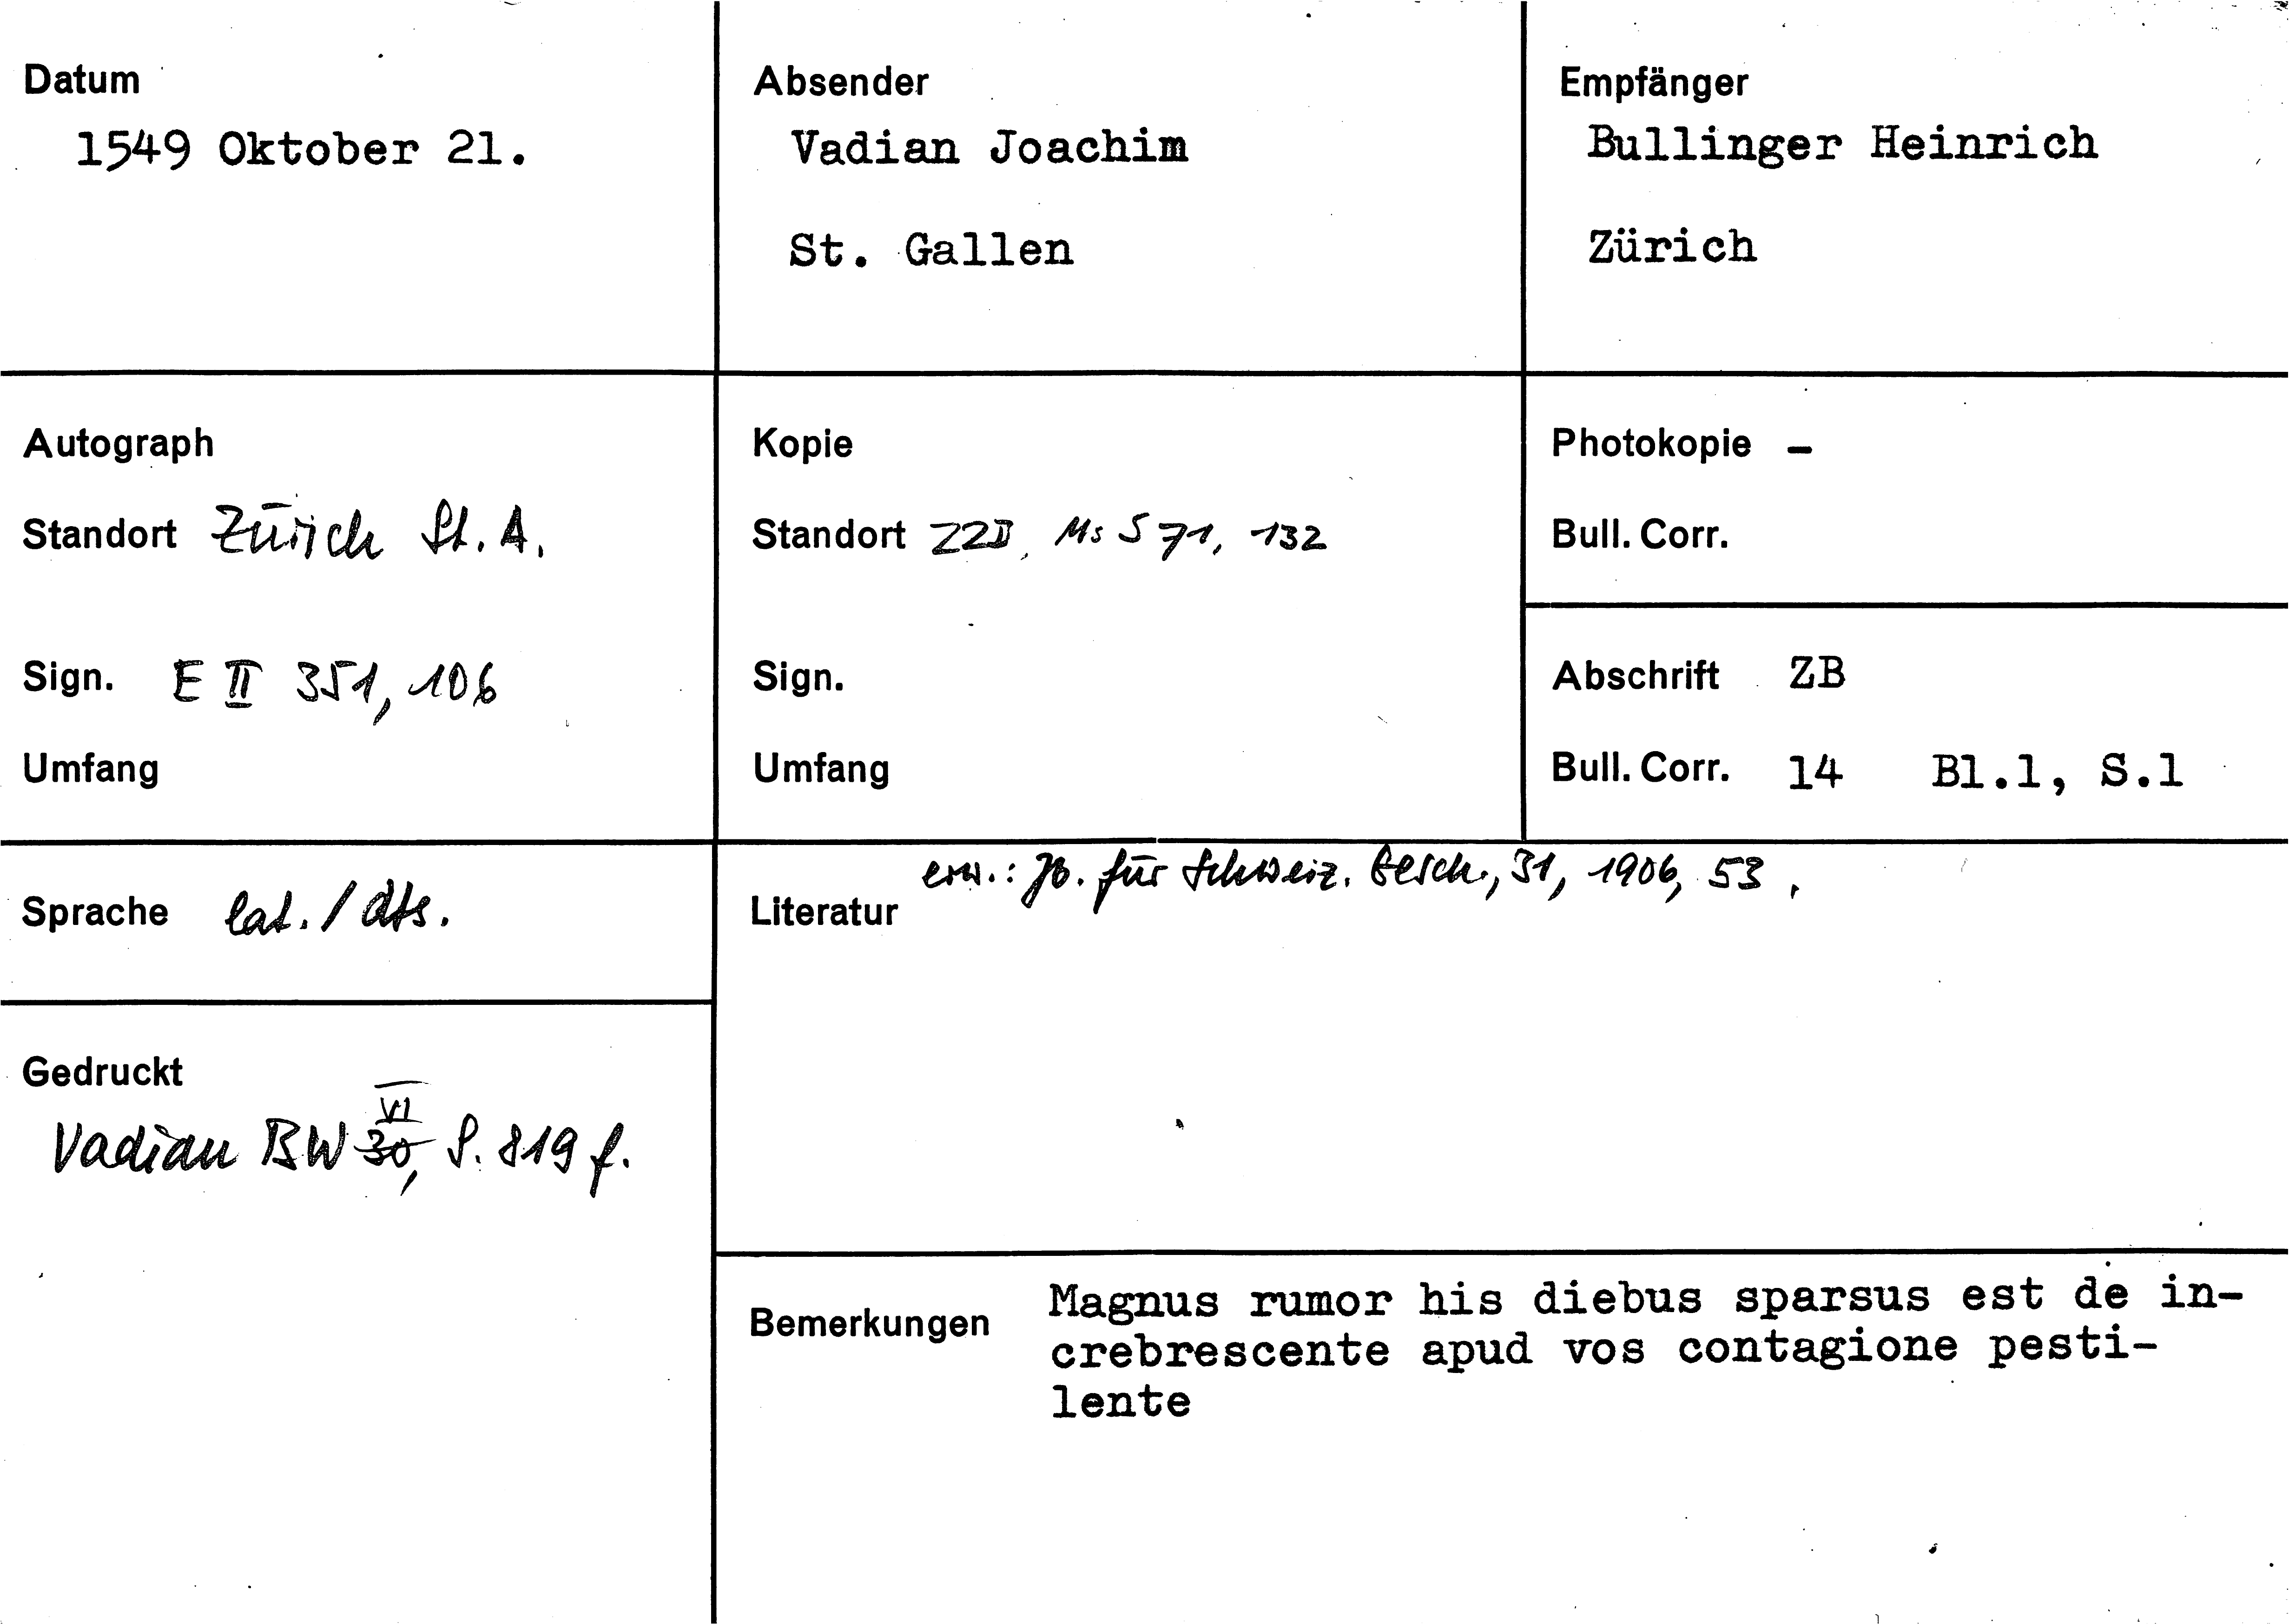 Datum
1549 Oktober 21.
Absender
Vadian Joachim
St. Gallen
Empfänger
Bullinger Heinrich
Zürich
Autograph
Standort Zürich St. A.
Sign. E II 351, 106
Umfang
Kopie
Standort ZZB, Ms S 71, 132
Sign.
Umfang
Photokopie -
Bull. Corr.
Abschrift ZB
Bull. Corr. 14 Bl.1, S.1
Sprache lat. / dts.
Literatur erw.: Jb. für Schweiz. Gesch., 31, 1906, 53.
Gedruckt
VI
Vadian BW 30, S. 819 f.
Bemerkungen Magnus rumor his diebus sparsus est de in-
crebrescente apud vos contagione pesti-
lente